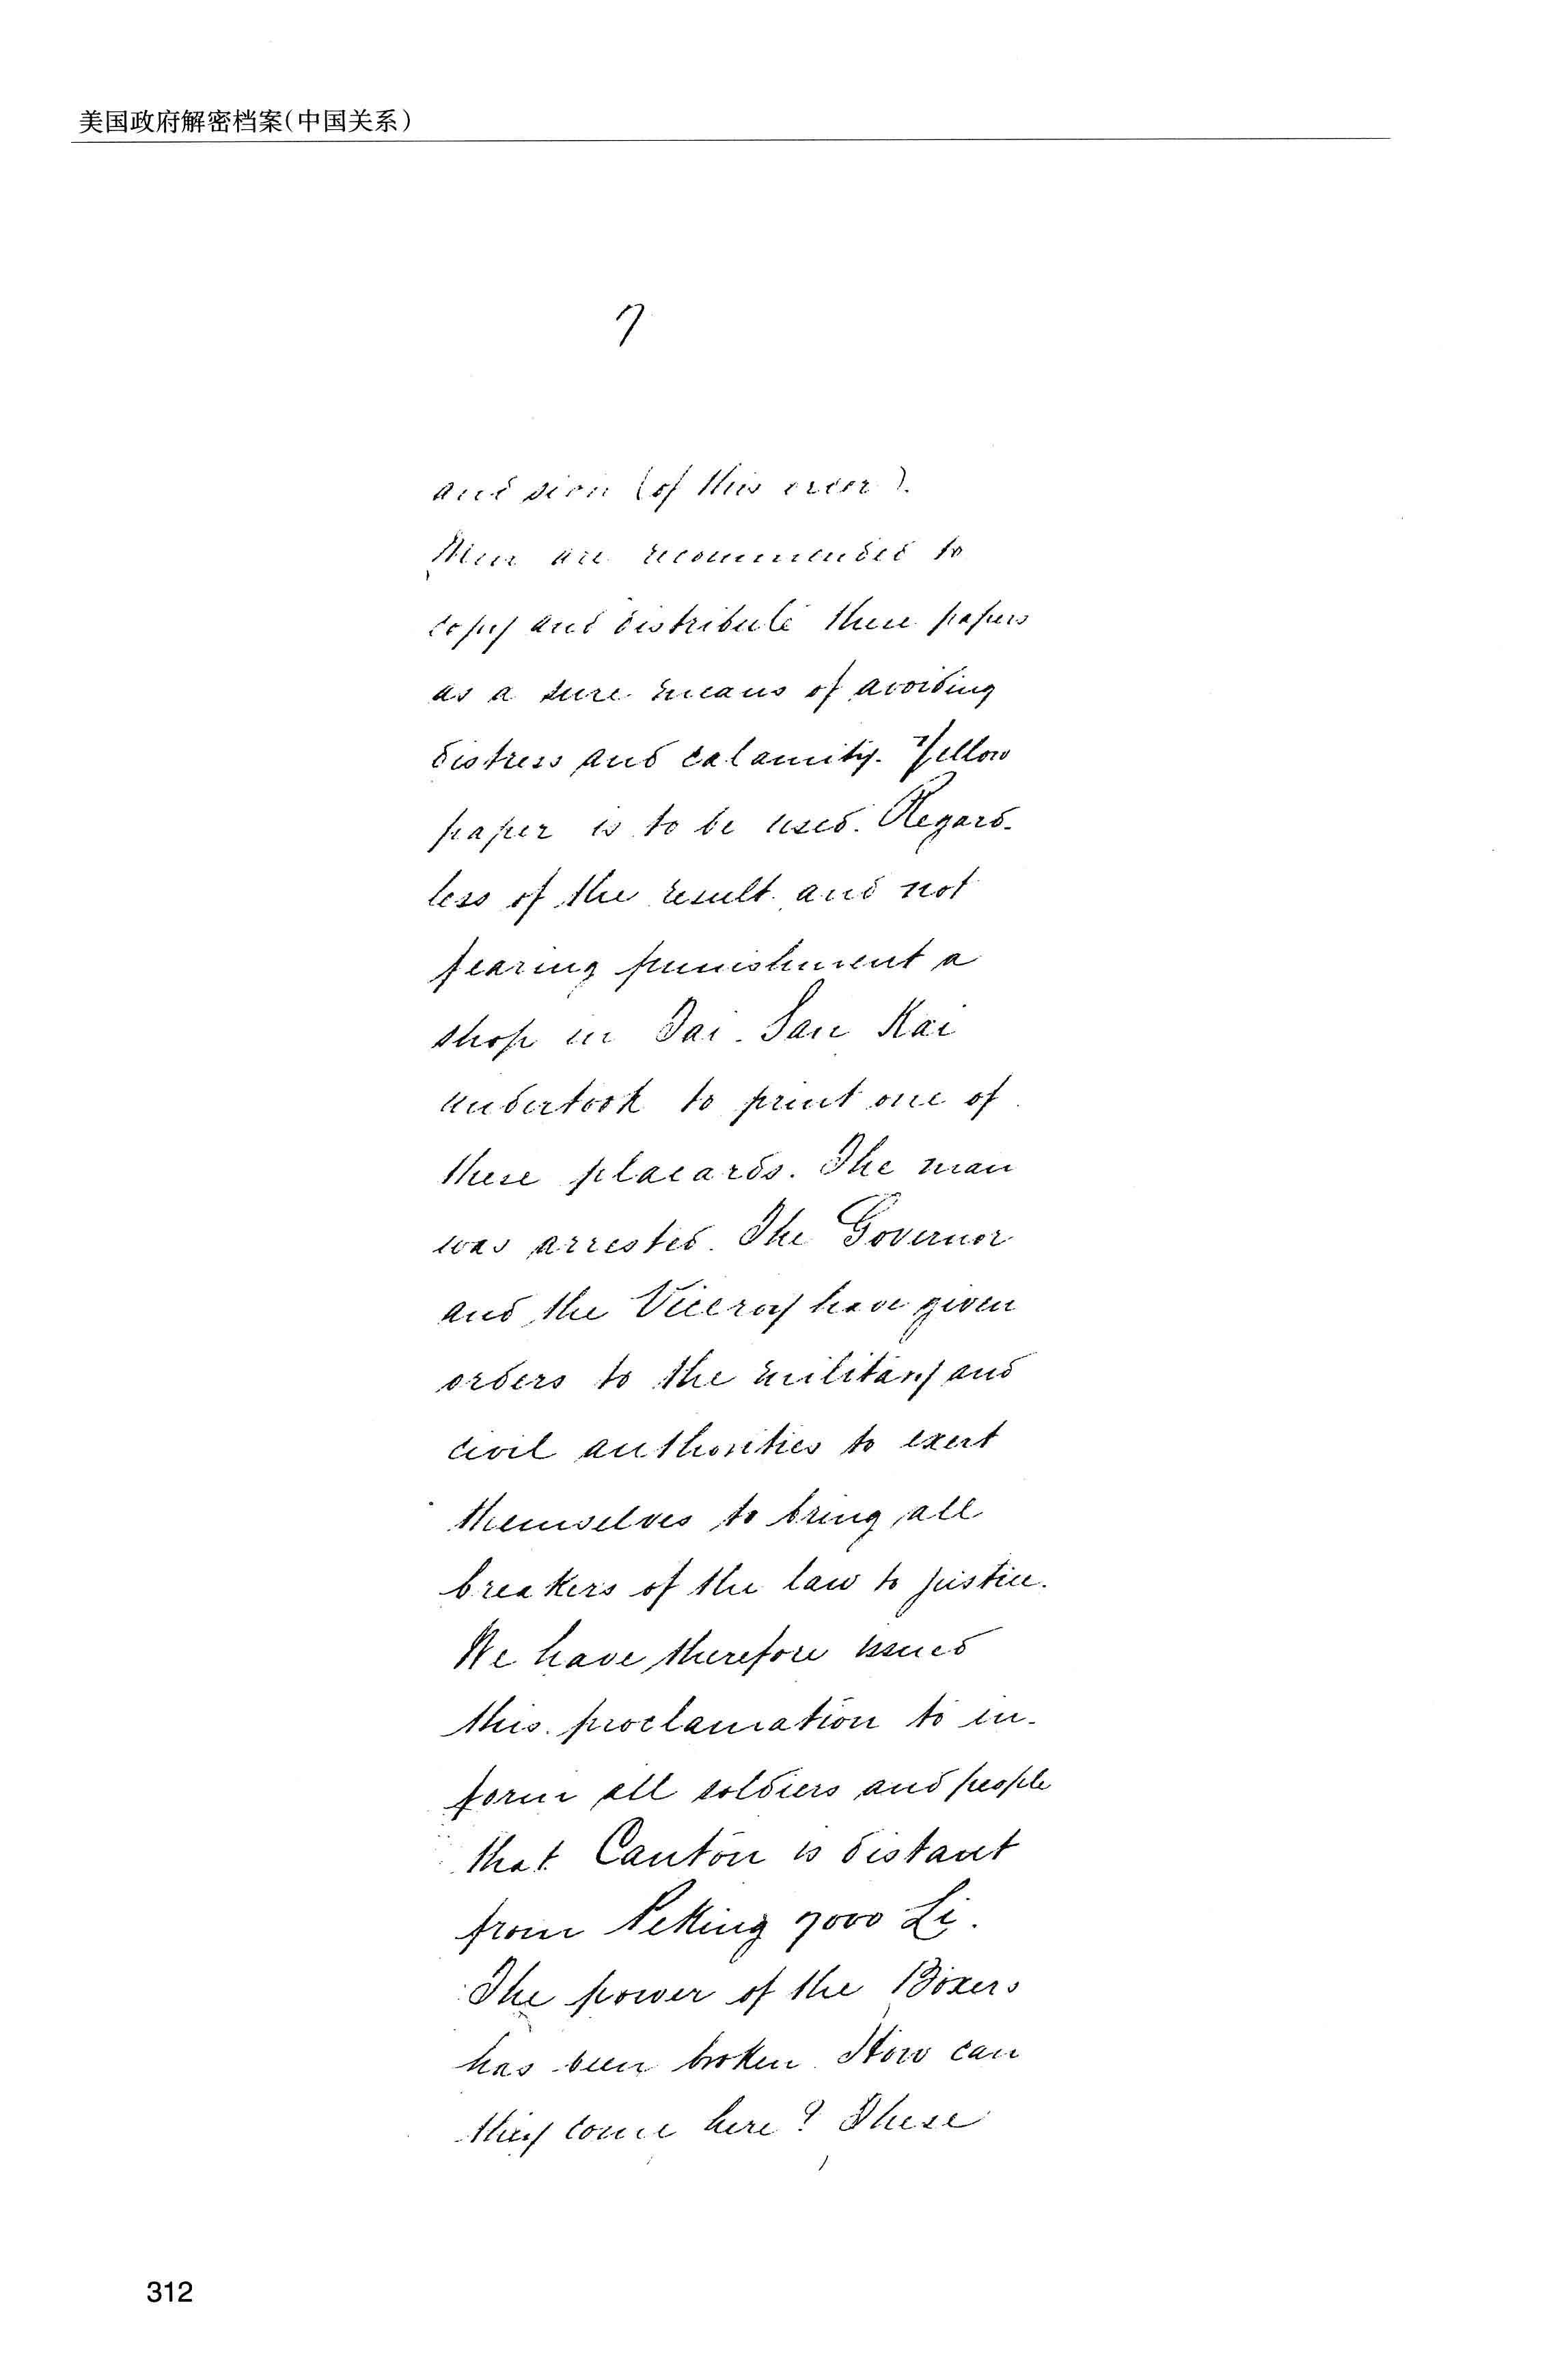 美国政府解密档案(中国关系)
7
and sion (of this order).
Men are recommended to
copy and distribute these papers
as a sure means of avoiding
distress and calamity. Yellow
paper is to be used. Regard-
less of the result and not
fearing punishment a
shop in Dai San Kai
undertook to print one of
these placards. The man
was arrested. The Governor
and the Viceroy have given
orders to the military and
civil authorities to exert
themselves to bring all
breakers of the law to justice.
We have therefore issued
this proclamation to in-
form all soldiers and people
that Canton is distant
from Peking 7000 Li.
The power of the Boxers
has been broken. How can
they come here? These
312